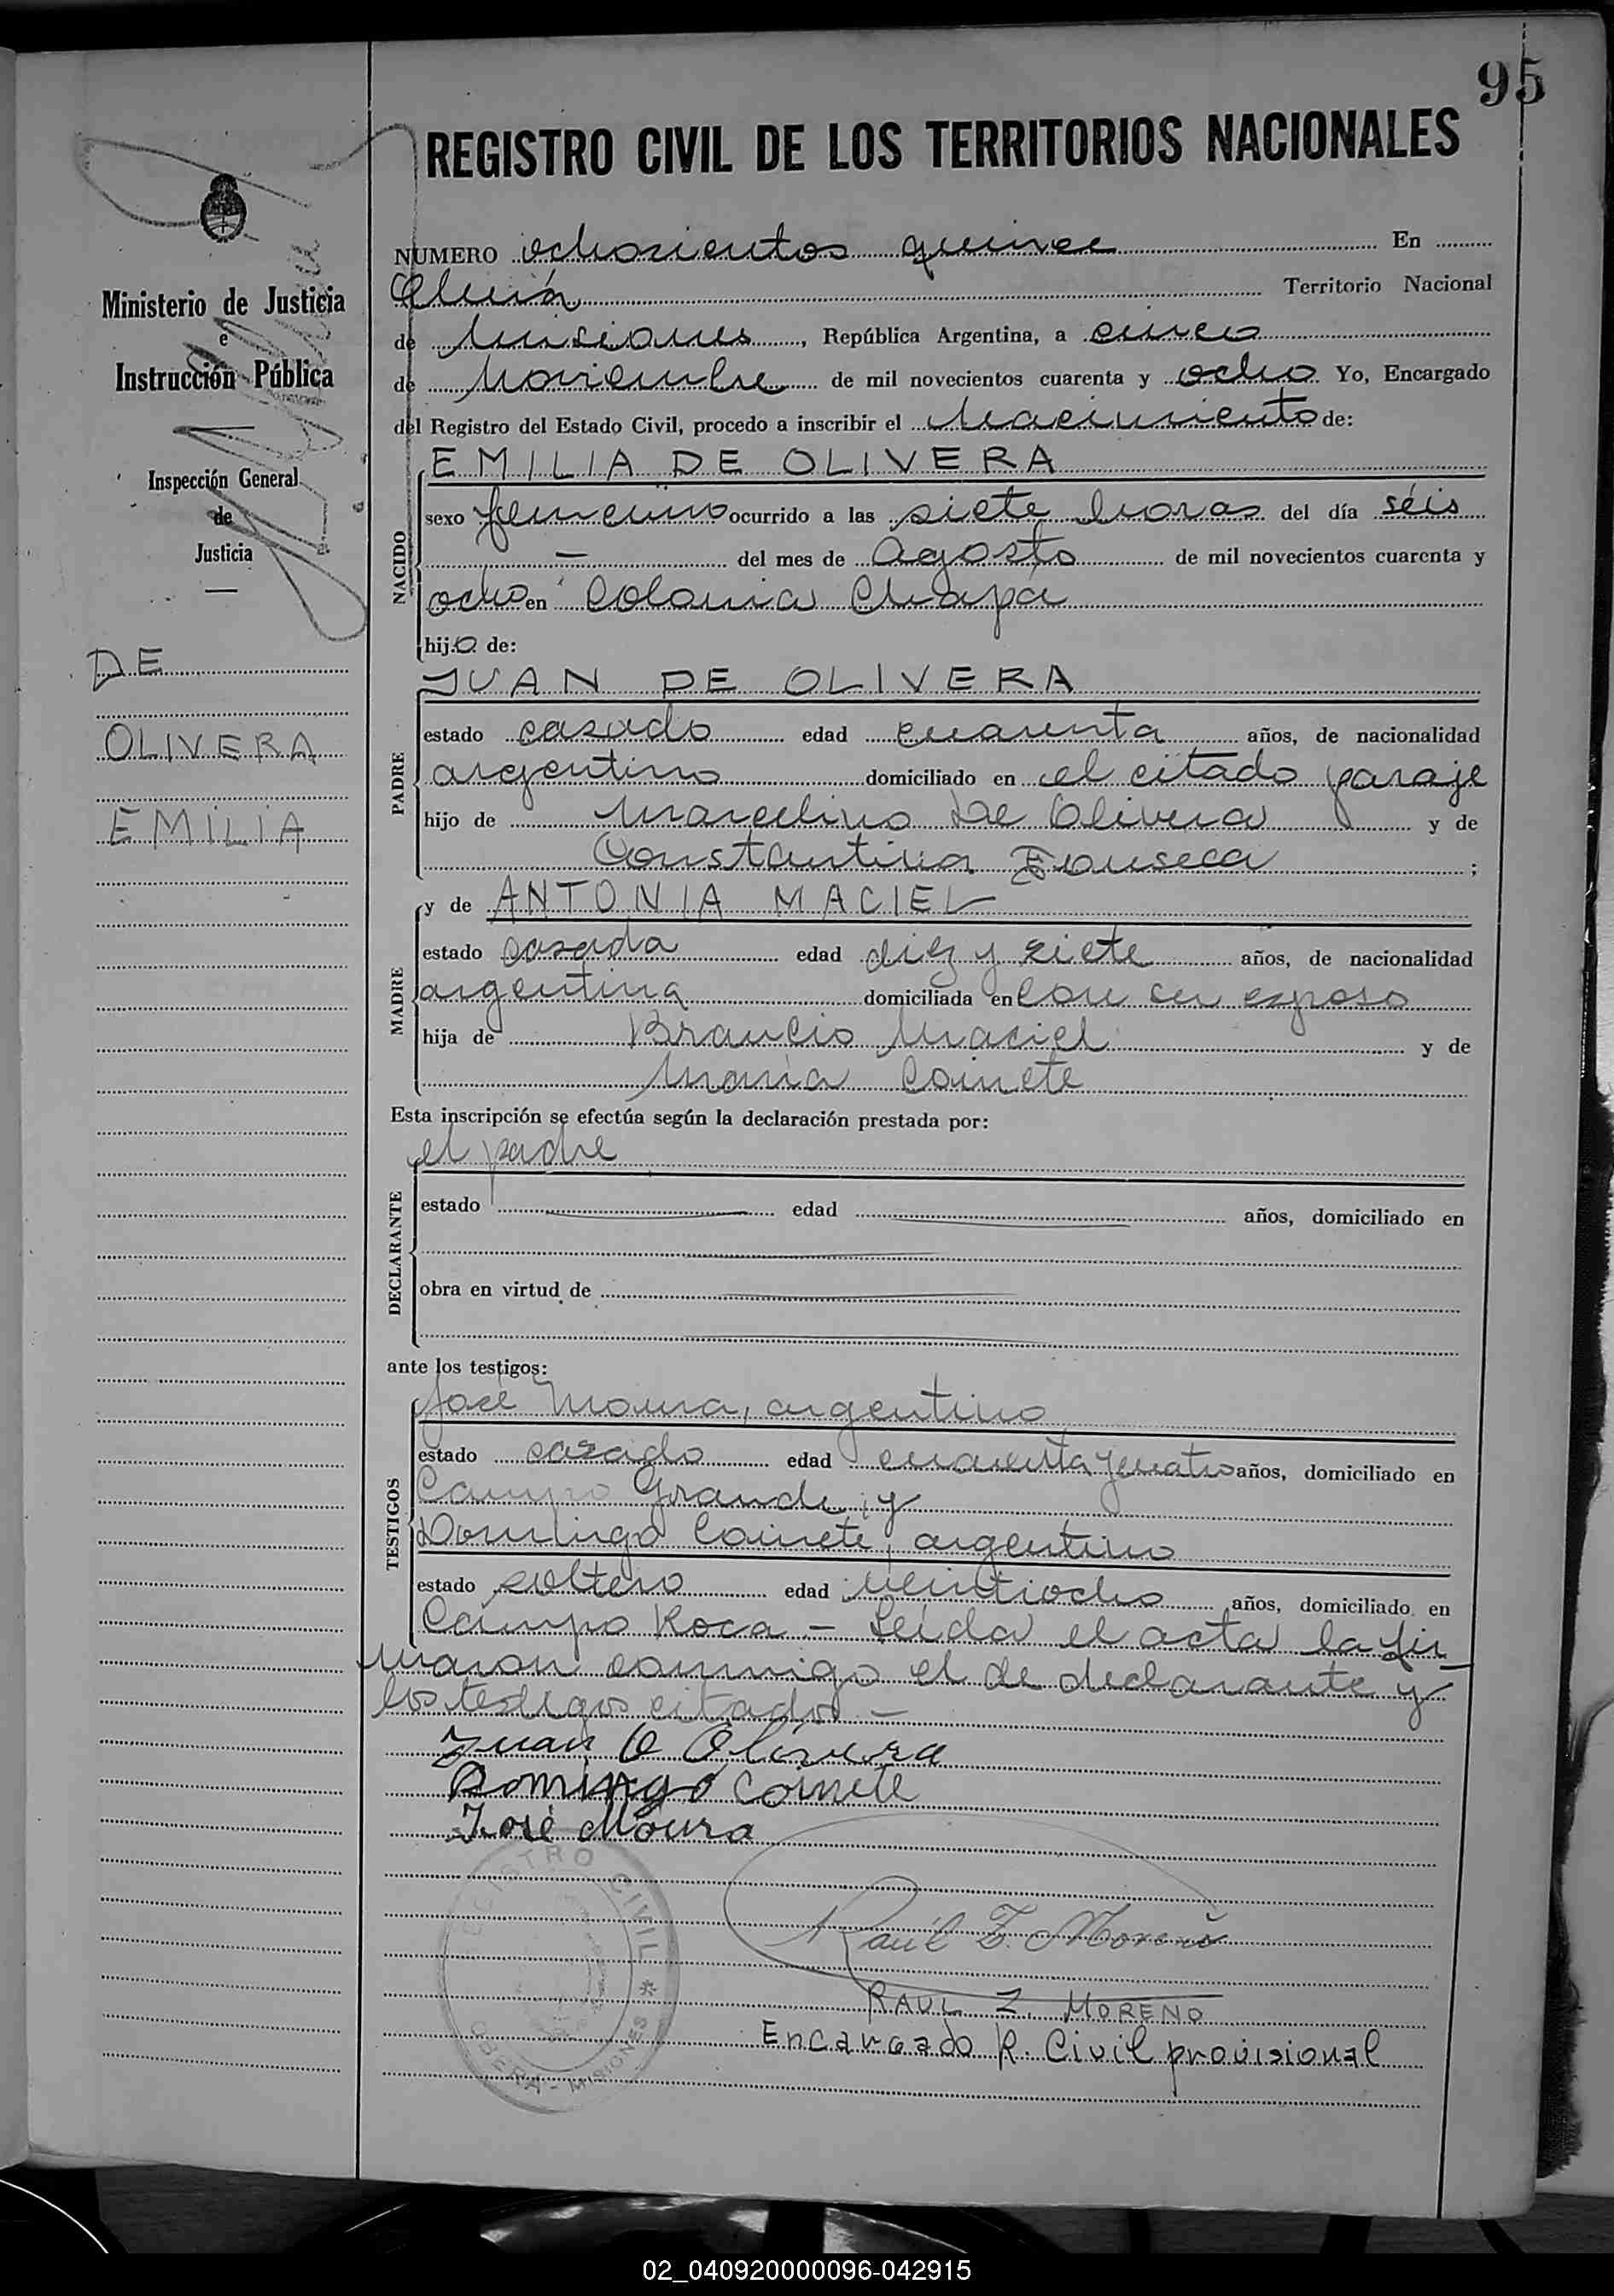 95
REGISTRO CIVIL DE LOS TERRITORIOS NACIONALES
Ministerio de Justicia
e
Instrucción Pública
Inspección General
de
Justicia
DE
OLIVERA
EMILIA
NUMERO ochocientos quince En
Territorio Nacional
de Misiones, República Argentina, a cinco
de Noviembre de mil novecientos cuarenta y ocho Yo, Encargado
del Registro del Estado Civil, procedo a inscribir el Nacimiento de:
NACIDO
EMILIA DE OLIVERA
sexo femenino ocurrido a las siete horas del día séis
— del mes de Agosto de mil novecientos cuarenta y
ocho en Colonia Chapá
hija de:
PADRE
JUAN DE OLIVERA
estado casado edad cuarenta años, de nacionalidad
argentino domiciliado en el citado paraje
hijo de Marcelino De Olivera y de
Constantina Fonseca ;
MADRE
y de ANTONIA MACIEL
estado casada edad diez y siete años, de nacionalidad
argentina domiciliada en con su esposo
hija de Brancio Maciel y de
María Coinete
Esta inscripción se efectúa según la declaración prestada por:
el padre
DECLARANTE
estado edad años, domiciliado en
obra en virtud de
ante los testigos:
TESTIGOS
José Moura, argentino
estado casado edad cuarenta y cuatro años, domiciliado en
Campo Grande; y
Domingo Coinete, argentino
estado soltero edad veintiocho años, domiciliado en
Campo Roca - Leída el acta la fir
maron conmigo el de declarante y
los testigos citados -
Juan D Olivera
Domingo Coinete
José Moura
REGISTRO CIVIL * OBERA - MISIONES
Raúl Z. Moreno
RAUL Z. MORENO
Encargado R. Civil provisional
02_040920000096-042915